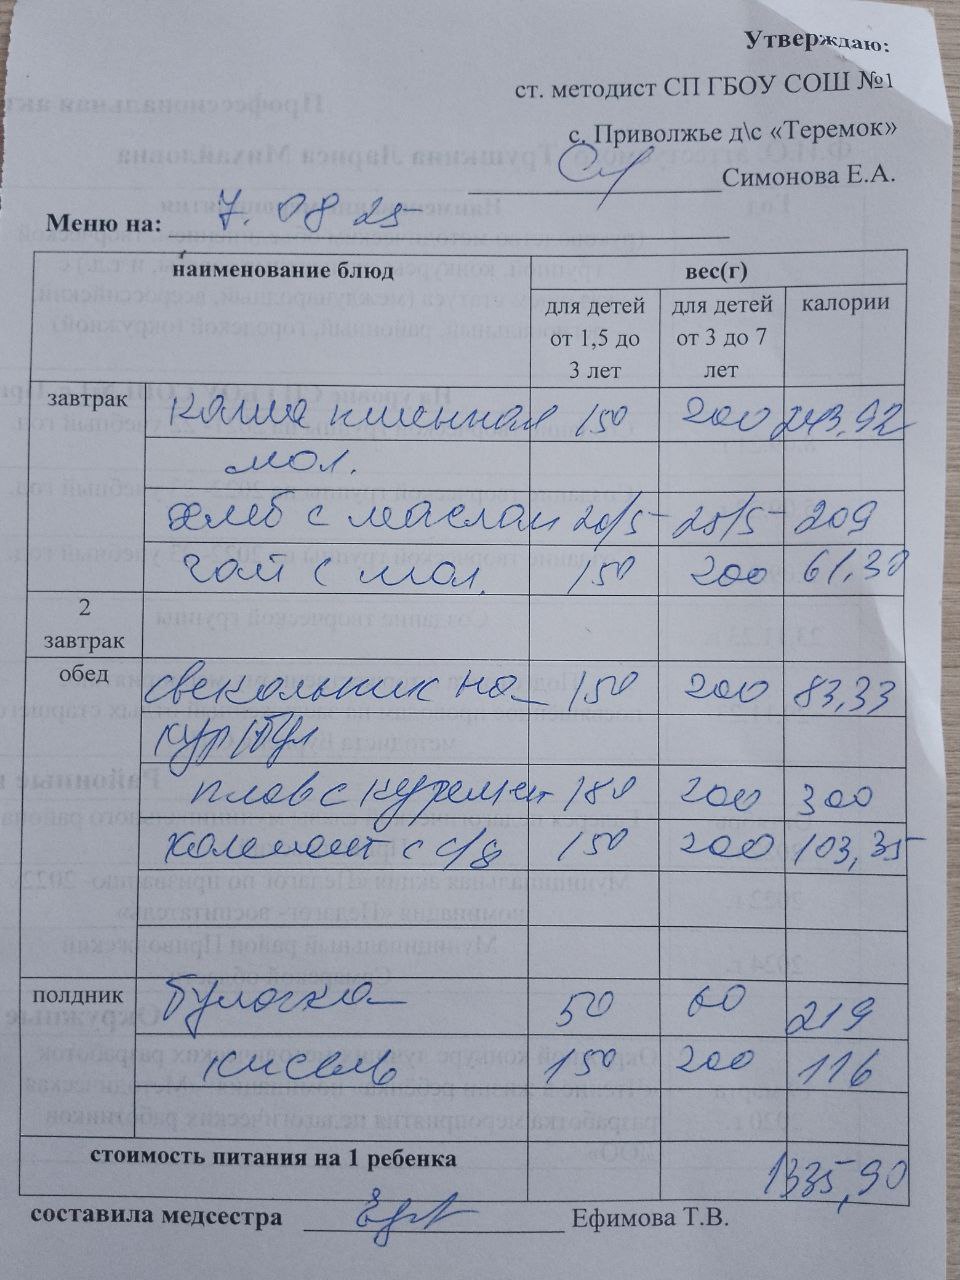 Утверждаю:
ст. методист СП ГБОУ СОШ №1
с. Приволжье д\с «Теремок»
Симонова Е.А.
Меню на: 7. 08 25
наименование блюд вес(г)
для детей от 1,5 до 3 лет для детей от 3 до 7 лет калории
завтрак каша пшенная 150 200 243,92
мол.
хлеб с маслом 20/5 25/5 209
чай с мол. 150 200 61,30
2 завтрак
обед свекольник на 150 200 83,33
кур/бул
плов с курямен 180 200 300
компот с с/ф 150 200 103,35
полдник булочка 50 60 219
кисель 150 200 116
стоимость питания на 1 ребенка 1335,90
составила медсестра Ефимова Т.В.